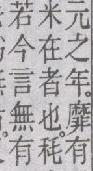 元之年。靡有
米在者也。秏
若今言無有